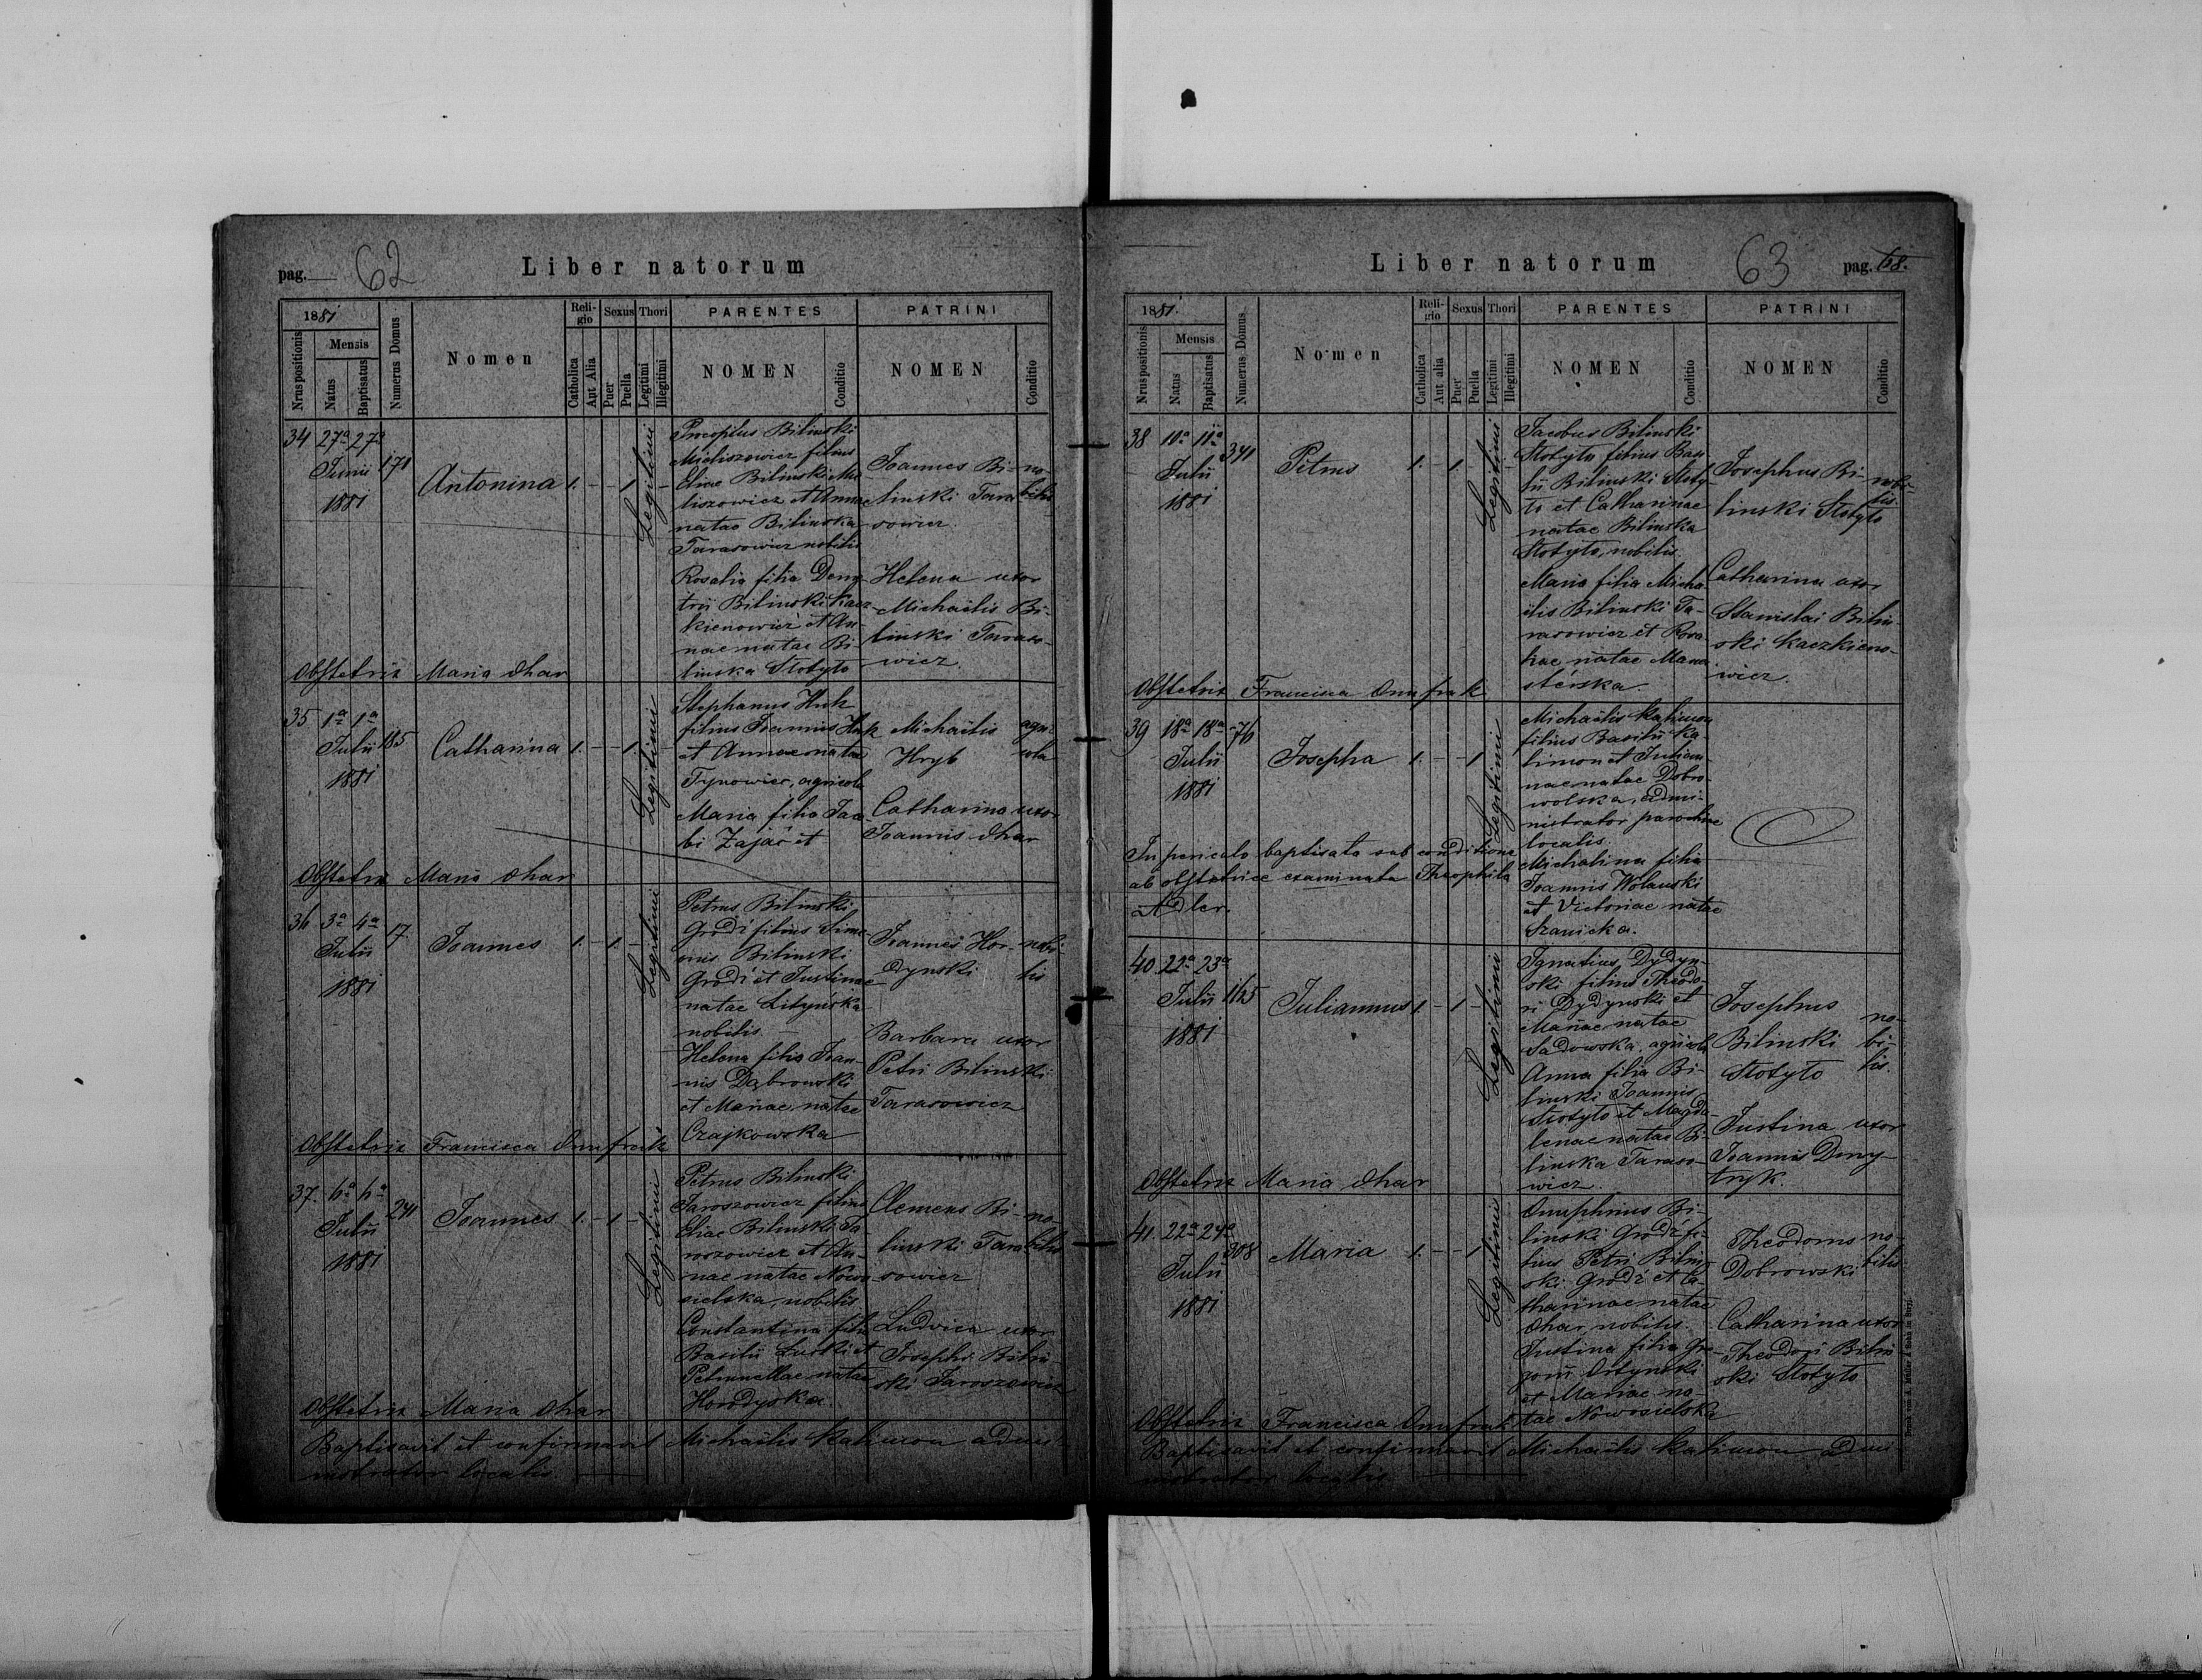 pag. 62
Liber natorum
1881
Nrus positionis
Mensis
Natus
Baptisatus
Numerus Domus
Nomen
Religio
Catholica
Aut Alia
Sexus
Puer
Puella
Thori
Legitimi
Illegitimi
PARENTES
NOMEN
Conditio
PATRINI
NOMEN
Conditio
34 27a 27a
Junii 171
1881
Antonina 1. - - 1 -
Legitimi
Procopius Bilinski
Micliszowicz filius
Eliae Bilinski Mi-
liszowicz et Annae
natae Bilinska
Tarasowicz nobilis
Rosalia filia Dem-
trii Bilinski Kacz-
kienowicz et An-
nae natae Bi-
linska Stotyto
Joannes Bi- no-
linski Tara- bilis
sowicz.
Helena uxor
Michaëlis Bi-
linski Taraso-
wicz.
Obstetrix Maria Ohar
35 1a 1a
Julii 185
1881
Catharina 1. - - 1 -
Legitimi
Stephanus Huk
filius Joannis Huk
et Annae natae
Tynowiec, agricola
Maria filia Jaco-
bi Zając et
Michaëlis agri-
Hryb cola
Catharina uxor
Joannis Ohar
Obstetrix Maria Ohar
36 3a 4a
Julii 17.
1881
Joannes 1. - 1. -
Legitimi
Petrus Bilinski
Grodź filius Simo-
nis Bilinski
Grodź et Justinae
natae Lityńska
nobilis.
Helena filia Joan-
nis Dąbrowski
et Mariae natae
Czajkowska
Joannes Hor- nobi-
dynski lis
Barbara uxor
Petri Bilinski
Tarasowicz
Obstetrix Francisca Onufrak
37. 6a 6a
Julii 241
1881
Joannes 1. - 1 -
Legitimi
Petrus Bilinski
Jaroszowicz filius
Eliae Bilinski Ja-
roszowicz et An-
nae natae Nowo-
sielska, nobilis
Constantina filia
Basilii Łucki et
Petrunellae natae
Horodyska.
Clemens Bi- no-
linski Tara- bilis
sowicz
Ludvica uxor
Josephi Bilin-
ski Jaroszowicz
Obstetrix Maria Ohar
Baptisavit et confirmavit Michaëlis Kalimon admi-
nistrator localis
Liber natorum
63
pag. 68.
1881.
Nrus positionis
Mensis
Natus
Baptisatus
Numerus Domus
Nomen
Religio
Catholica
Aut alia
Sexus
Puer
Puella
Thori
Legitimi
Illegitimi
PARENTES
NOMEN
Conditio
PATRINI
NOMEN
Conditio
38 10a 11a
Julii 341
1881
Petrus 1. - 1. -
Legitimi
Jacobus Bilinski
Stotyto filius Basi-
lii Bilinski Stoty-
to et Catharinae
natae Bilinska
Stotyto, nobilis.
Maria filia Micha-
ëlis Bilinski Ta-
rasowicz et Rosa-
liae natae Mana-
sterska.
Josephus Bi- nobi-
linski Stotyto lis.
Catharina uxor
Stanislai Bilin-
ski Kaczkieno-
wicz.
Obstetrix Francisca Onufrak
39 18a 18a 76
Julii
1881
Josepha 1. - - 1
Legitimi
Michaëlis Kalimon
filius Basilii Ka-
limon et Julian-
nae natae Dobro-
wolska, admi-
nistrator parochiae
localis.
Michalina filia
Joannis Wolanski
et Victoriae natae
Szanicka.
In periculo baptisata sub conditione
ab obstetrice examinata Theophila
Adler.
40 22a 23a
Julii 165
1881
Juliannus 1. - 1 -
Legitimi
Ignatius Dydyn-
ski filius Theodo-
ri Dydynski et
Mariae natae
Sadowska, agricola
Anna filia Bi-
linski Joannis
Stotyto et Magda-
lenae natae Bi-
linska Taraso-
wicz.
Josephus no-
Bilinski bi-
Stotyto lis.
Justina uxor
Joannis Dmy-
tryk.
Obstetrix Maria Ohar
41 22a 24a
Julii 308
1881
Maria 1. - - 1
Legitimi
Onuphrius Bi-
linski Grodź fi-
lius Petri Bilin-
ski Grodź et Ca-
tharinae natae
Ohar, nobilis.
Justina filia Gre-
gorii Ortynski
et Mariae na-
tae Nowosielska
Theodorus no-
Dobrowski bilis
Catharina uxor
Theodori Bilin-
ski Stotyto
Obstetrix Francisca Onufrak
Baptisavit et confirmavit Michaëlis Kalimon admi-
nistrator localis